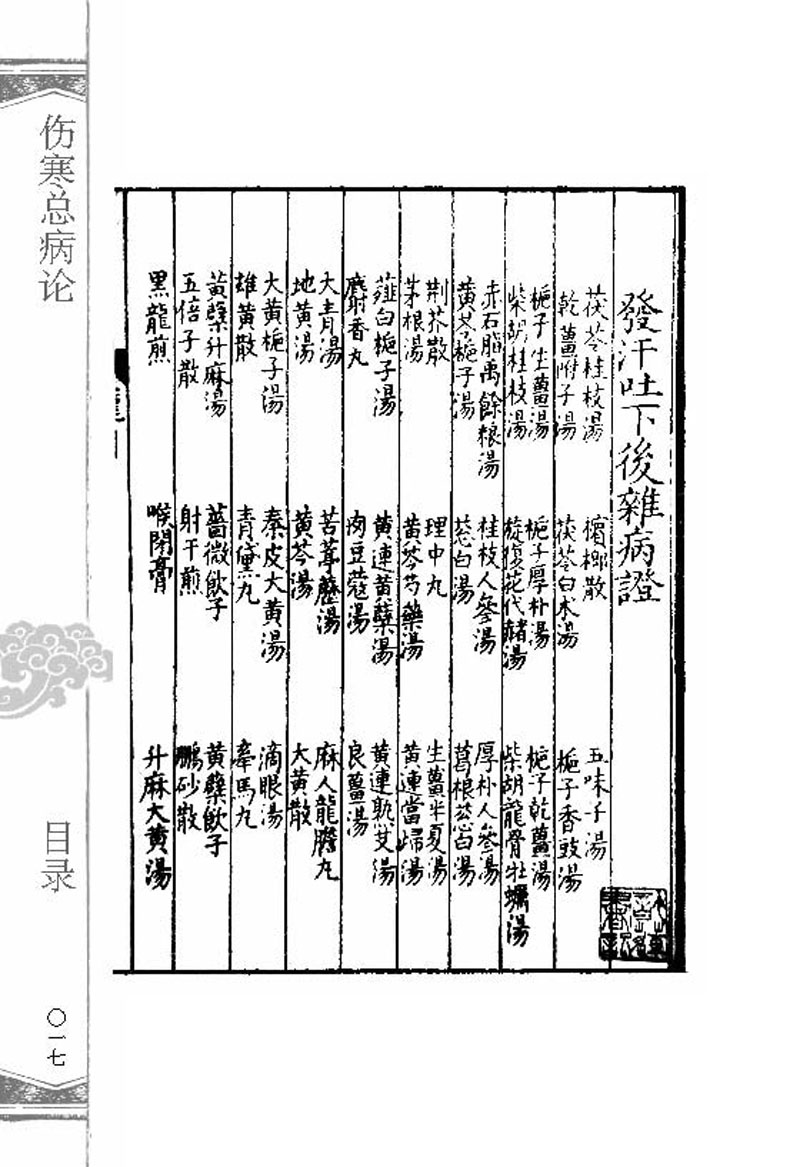 伤寒总病论
目录
〇一七
發汗吐下後雜病證
茯苓桂枝湯 檳榔散 五味子湯
乾薑附子湯 茯苓白朮湯 梔子香豉湯
梔子生薑湯 梔子厚朴湯 梔子乾薑湯
柴胡桂枝湯 旋復花代赭湯 柴胡龍骨牡蠣湯
赤石脂禹餘粮湯 桂枝人參湯 厚朴人參湯
黃芩梔子湯 葱白湯 葛根葱白湯
荆芥散 理中丸 生薑半夏湯
茅根湯 黃芩芍藥湯 黃連當歸湯
薤白梔子湯 黃連黃蘗湯 黃連熟艾湯
麝香丸 肉豆蔻湯 良薑湯
大青湯 苦葶藶湯 麻人龍膽丸
地黃湯 黃芩湯 大黃散
大黃梔子湯 秦皮大黃湯 滴眼湯
雄黃散 青黛丸 牽馬丸
黃蘗升麻湯 薔薇飲子 黃蘗飲子
五倍子散 射干煎 鵬砂散
黑龍煎 喉閉膏 升麻大黃湯